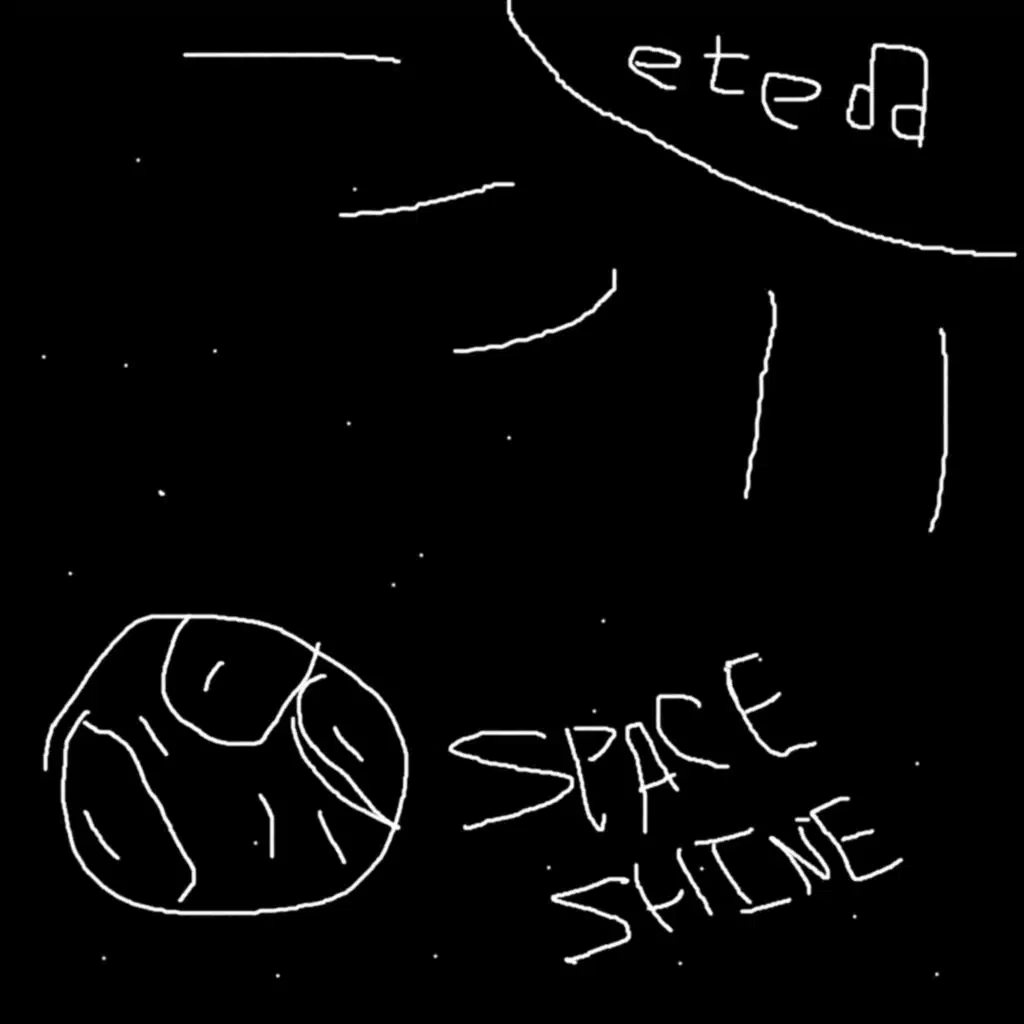 ete♫
SPACE
SHINE